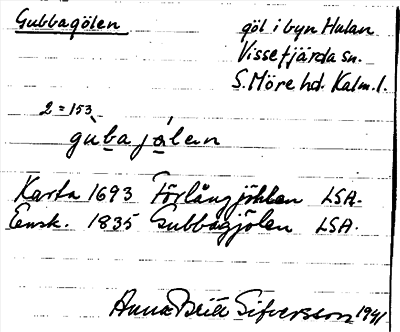 Gubbagölen göl i byn Hulan
Vissefjärda sn.
S. Möre hd. Kalm. l.
2 = 153
gùbajọ́lẹn
Karta 1693 Förlångjöhlen LSA.
Ensk. 1835 Gubbagjölen LSA.
Anna-Britt Sifversson 1941